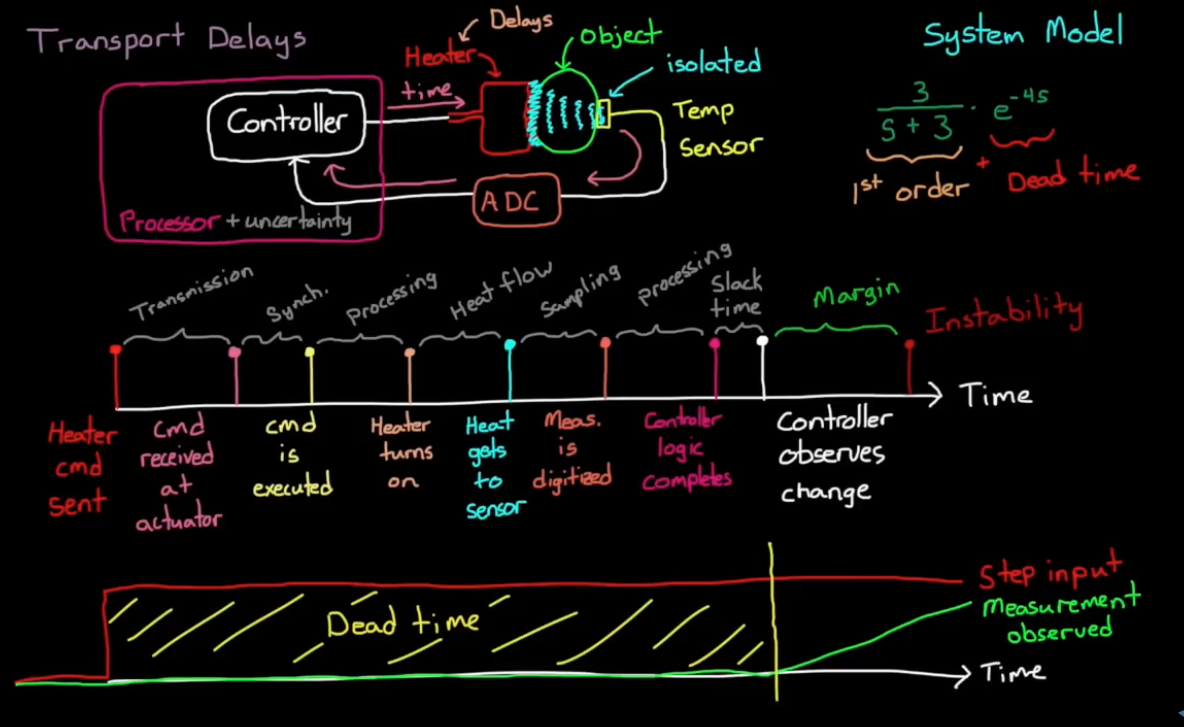 Transport Delays
Delays
Heater
Object
isolated
System Model
time
Controller
Temp
Sensor
3
s + 3
· e^-4s
1st order
+
Dead time
ADC
Processor + uncertainty
Transmission
Synch.
processing
Heat flow
Sampling
processing
Slack
time
Margin
Instability
Time
Heater
cmd
sent
Cmd
received
at
actuator
cmd
is
executed
Heater
turns
on
Heat
gets
to
sensor
Meas.
is
digitized
Controller
logic
completes
Controller
observes
change
Dead time
Step input
Measurement
observed
Time